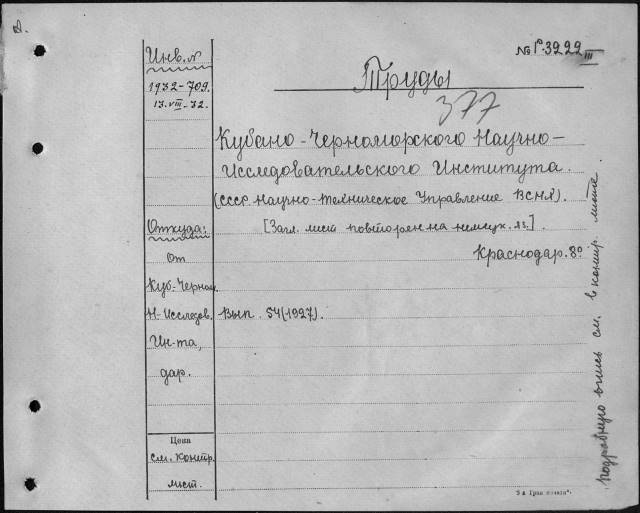 № Г.3222 III
Инв. №
Труды
1932-709.
13.VIII-32.
377
Кубано-Черноморского Научно-
Исследовательского Института.
(СССР Научно-Техническое Управление ВСНХ).
Откуда:
[Загл. лист повторен на немецк. яз.].
От
Краснодар. 8º
Куб-Черном.
Н-Исследов.
Вып. 54(1927).
Ин-та,
дар.
Цена
см. контр.
лист.
подробную опись см. в контр. листе.